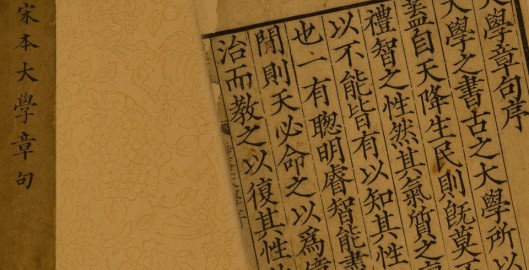 宋本大學章句
大學章句序
大學之書古之大學所以
蓋自天降生民則既莫
禮智之性然其氣質之
以不能皆有以知其性
也一有聰明睿智能盡
閒則天必命之以爲億
治而教之以復其性